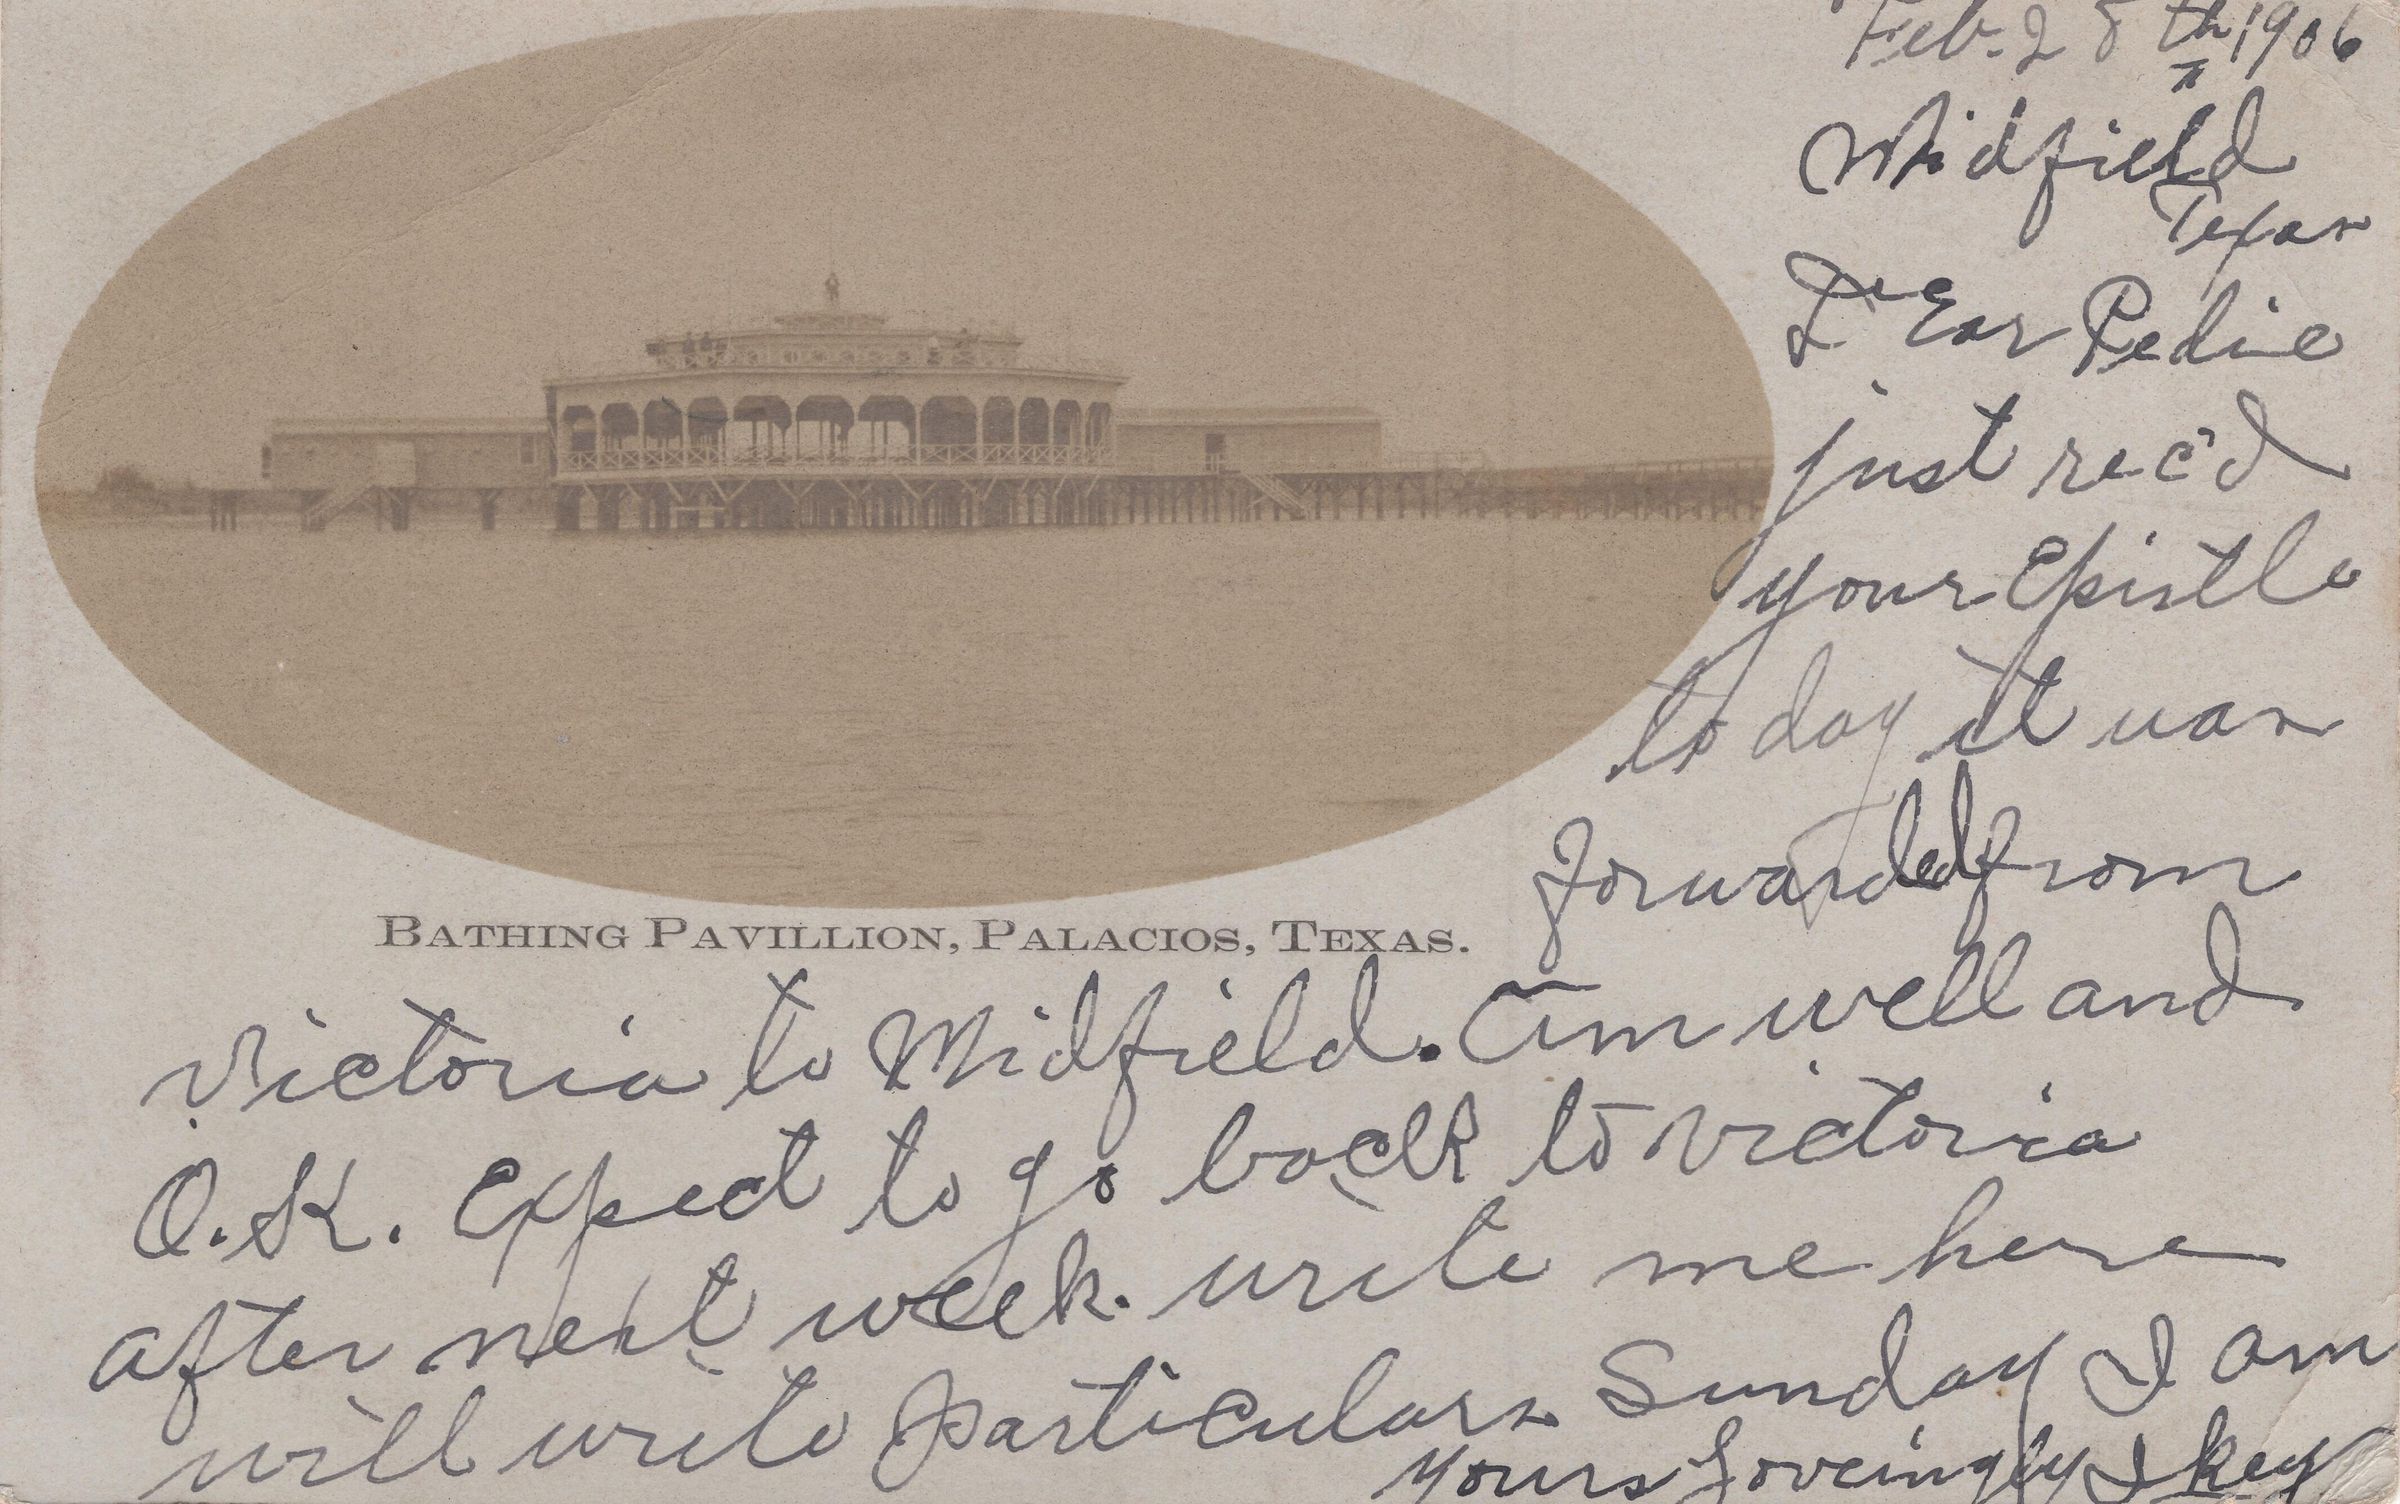 Feb. 28th 1906
Midfield
Texas
Dear Pedie
just rec'd
your Epistle
to day it was
forwarded from
BATHING PAVILLION, PALACIOS, TEXAS.
Victoria to Midfield. Am well and
O.K. Expect to go back to Victoria
after next week. write me here
will write particulars Sunday I am
yours Lovingly Ikey